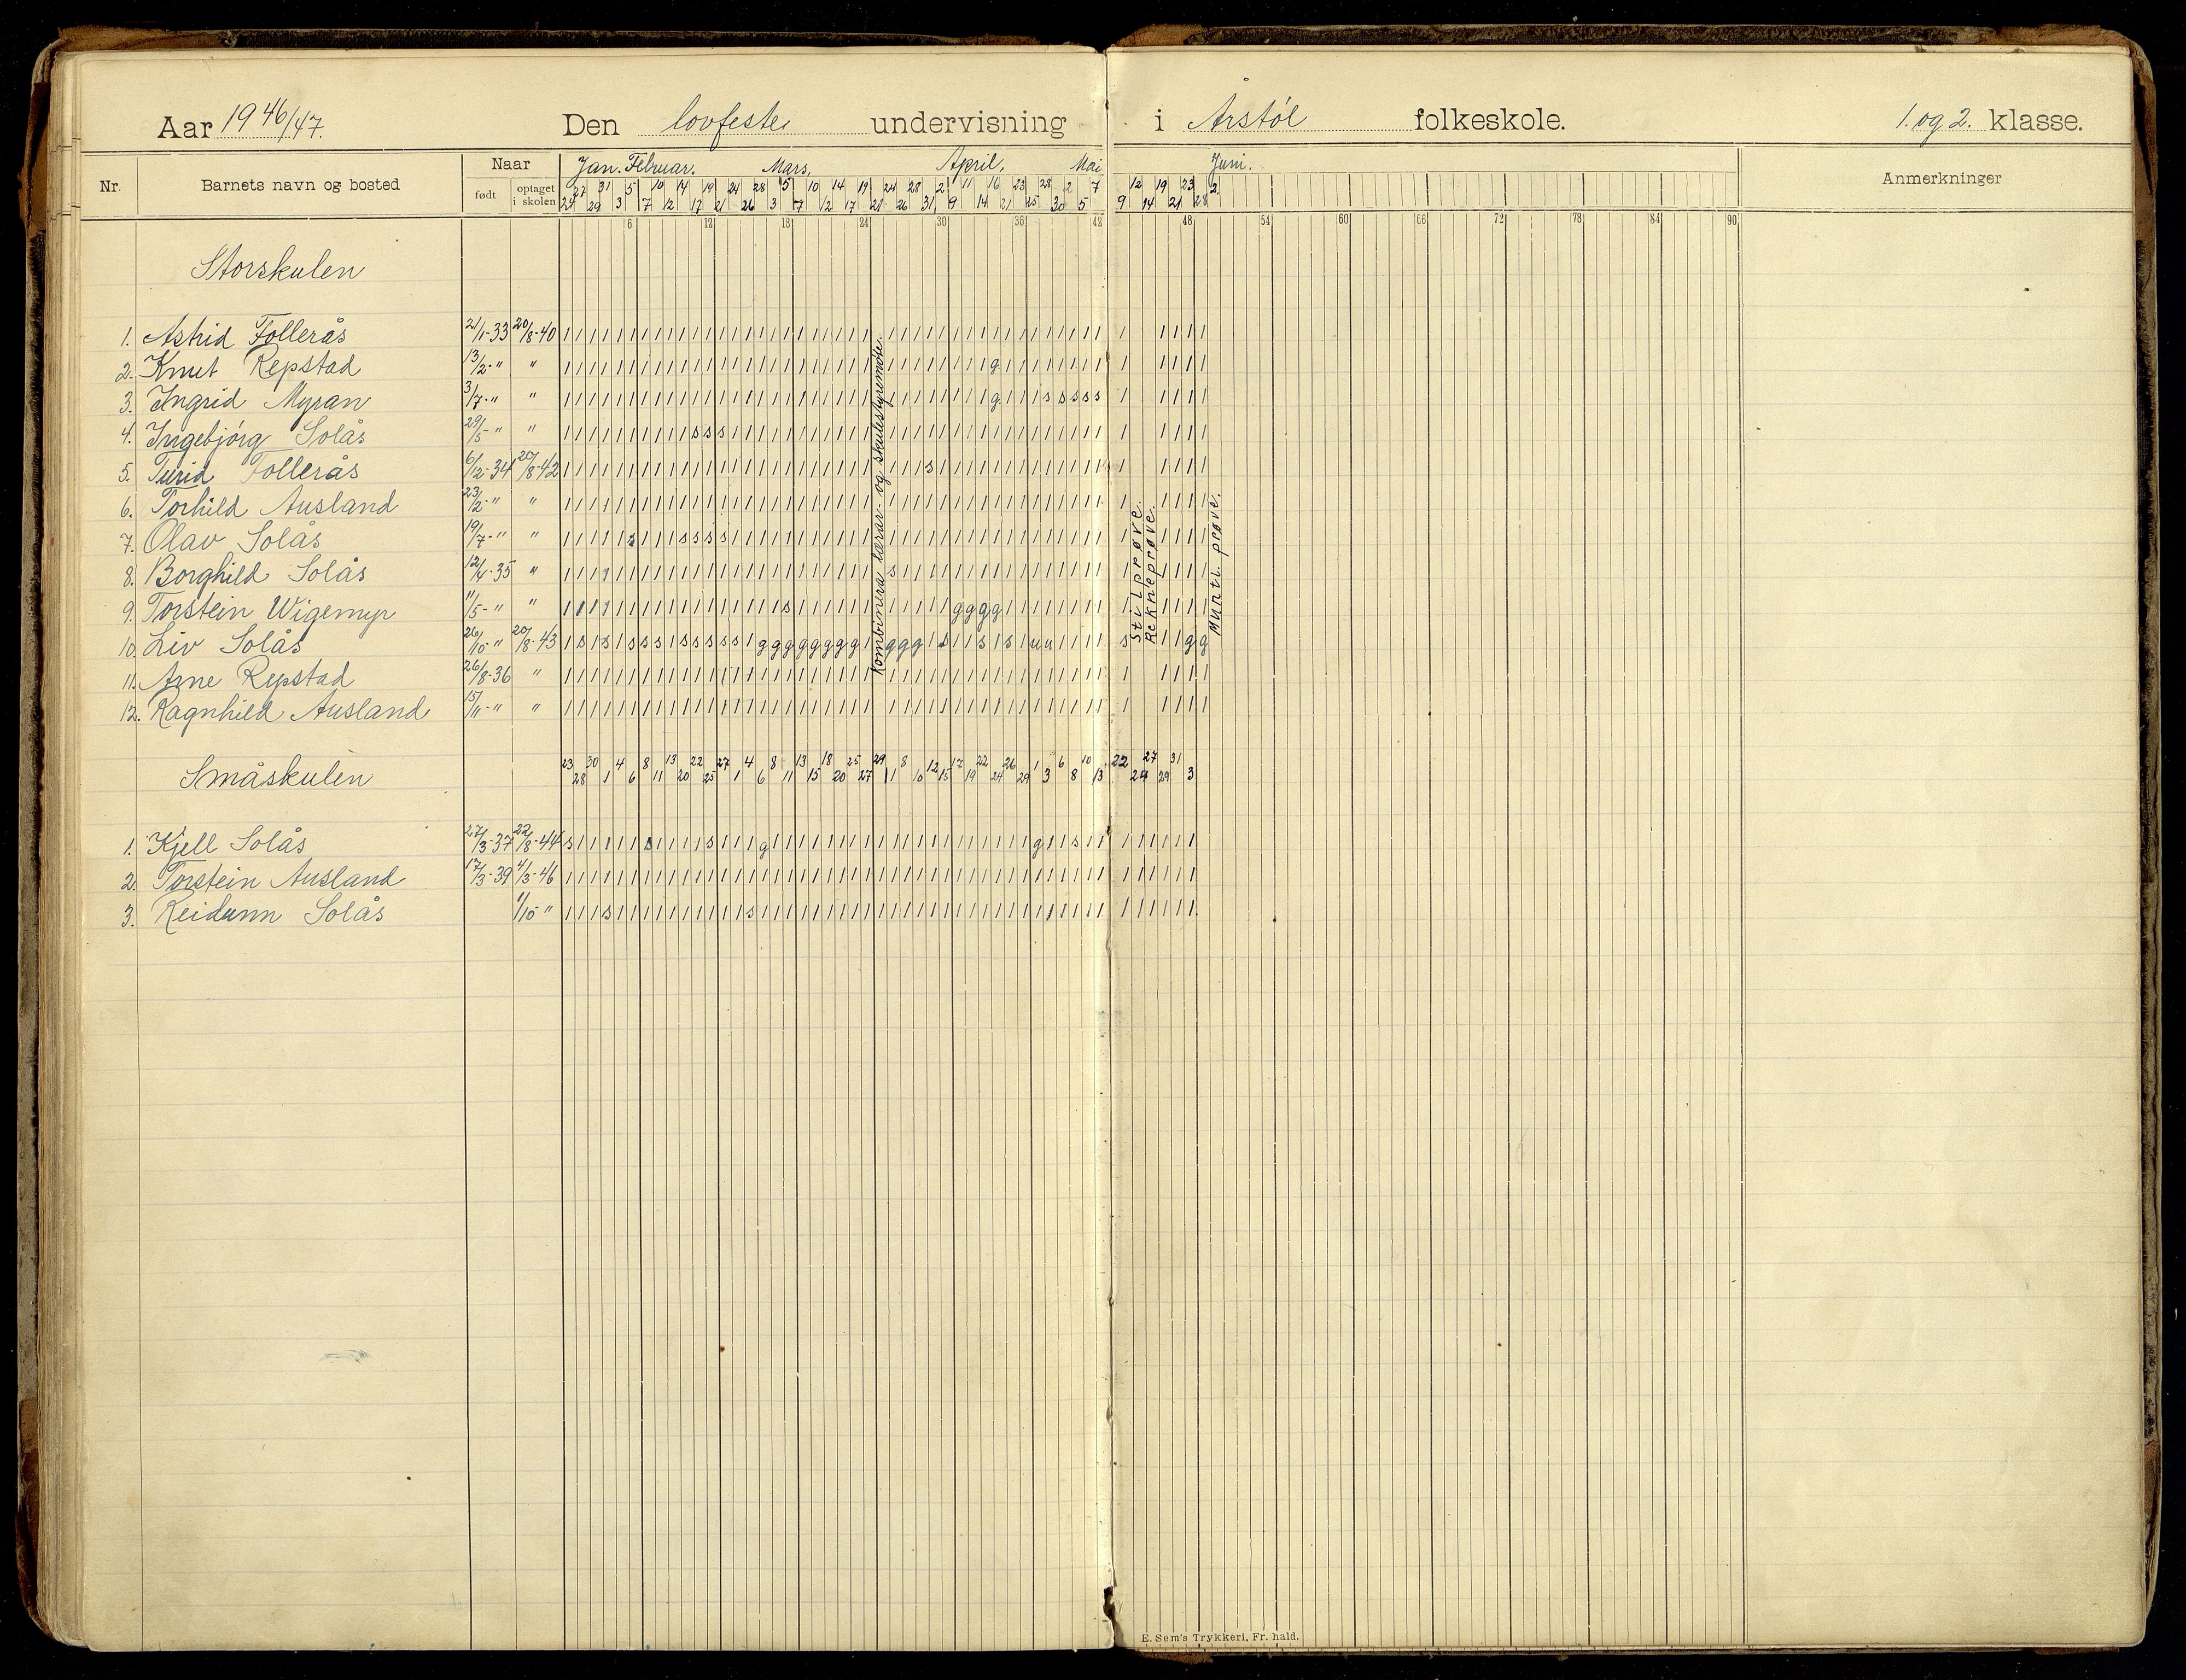 Aar 1946/47. Den lovfeste undervisning i Årstøl folkeskole. 1. og 2. klasse.
Nr. Barnets navn og bosted Naar født optaget i skolen Jan. Februar. Mars. April. Mai Juni. Anmerkninger
27 31 5 10 14 19 24 28 5 10 14 19 24 28 2 11 16 23 28 2 7 12 19 23 2.
24 29 3 7 12 17 21 26 3 7 12 17 21 26 31 9 14 21 25 30 5 9 14 21 28
6 12 18 24 30 36 42 48 54 60 66 72 78 84 90
Storskulen
1. Astrid Follerås 21/1-33 20/8-40
2. Knut Repstad 13/2-" "
3. Ingrid Myran 3/7-" "
4. Ingebjørg Solås 29/5-" "
5. Turid Follerås 6/12-34 20/8-42
6. Torhild Ausland 23/2-" "
7. Olav Solås 19/7-" "
8. Borghild Solås 12/4-35 "
9. Torstein Wigemyr 11/5-" "
10. Liv Solås 26/10-" 20/8-43
11. Arne Repstad 26/8-36 "
12. Ragnhild Ausland 15/11-" "
Kombinera lærar- og skulestyremøte.
Stilprøve.
Rekneprøve.
Muntl. prøve.
Småskulen
23 30 4 8 13 22 27 4 8 13 18 25 29 8 12 17 22 26 1 6 10 22 27 31
28 1 6 11 20 25 1 6 11 15 20 27 1 10 15 19 24 29 3 8 13 24 29 3
1. Kjell Solås 27/3-37 22/8-44
2. Torstein Ausland 17/3-39 4/3-46
3. Reidunn Solås 1/10 "
E. Sem's Trykkeri, Fr. hald.